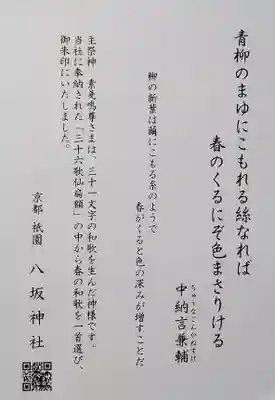 青柳のまゆにこもれる絲なれば
春のくるにぞ色まさりける
ちゅうなごんかねすけ
中納言兼輔
柳の新葉は繭にこもる糸のようで
春がくると色の深みが増すことだ
主祭神 素戔嗚尊さまは、三十一文字の和歌を生んだ神様です。
当社に奉納された「三十六歌仙扁額」の中から春の和歌を一首選び、
御朱印にいたしました。
京都 祇園 八坂神社